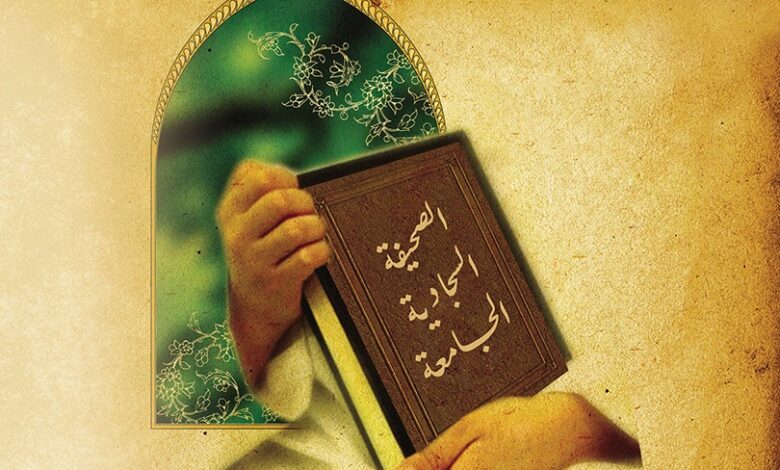 الصحيفة
السجادية
الجامعة